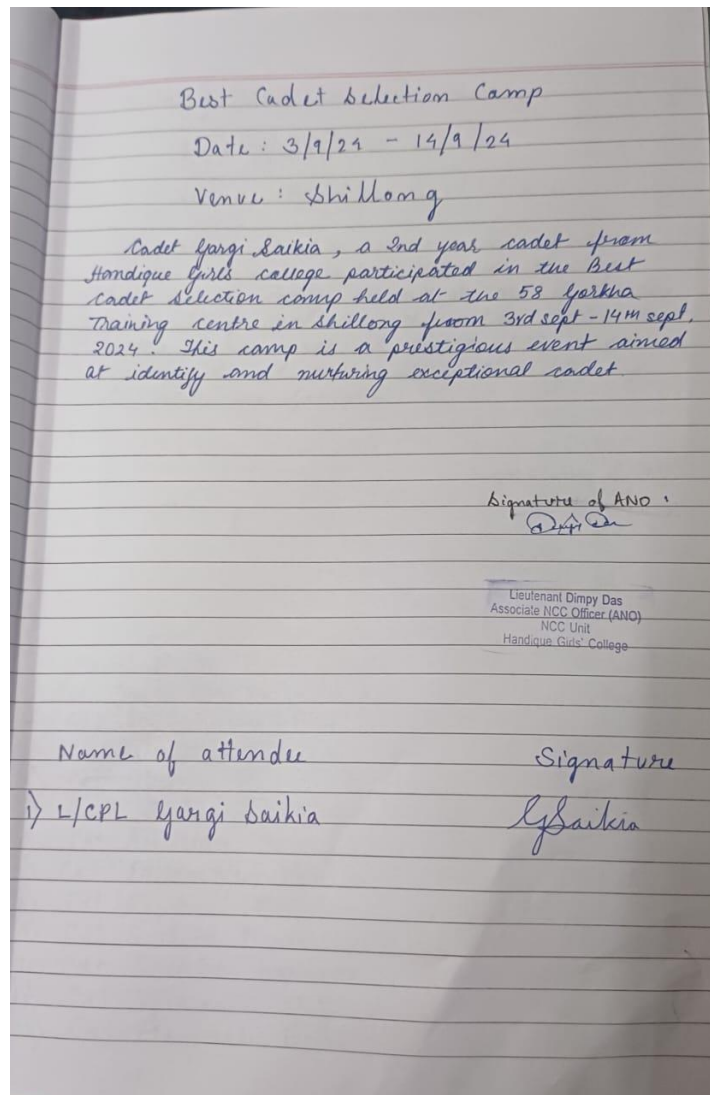 Best Cadet Selection Camp
Date : 3/9/24 - 14/9/24
Venue : Shillong
Cadet Gargi Saikia, a 2nd year cadet from
Handique Girls college participated in the Best
cadet selection camp held at the 58 Gorkha
Training centre in Shillong from 3rd sept - 14th sept,
2024. This camp is a prestigious event aimed
at identify and nurturing exceptional cadet.
Signature of ANO :
Lieutenant Dimpy Das
Associate NCC Officer (ANO)
NCC Unit
Handique Girls' College
Name of attendee Signature
1) L/CPL Gargi Saikia GSaikia